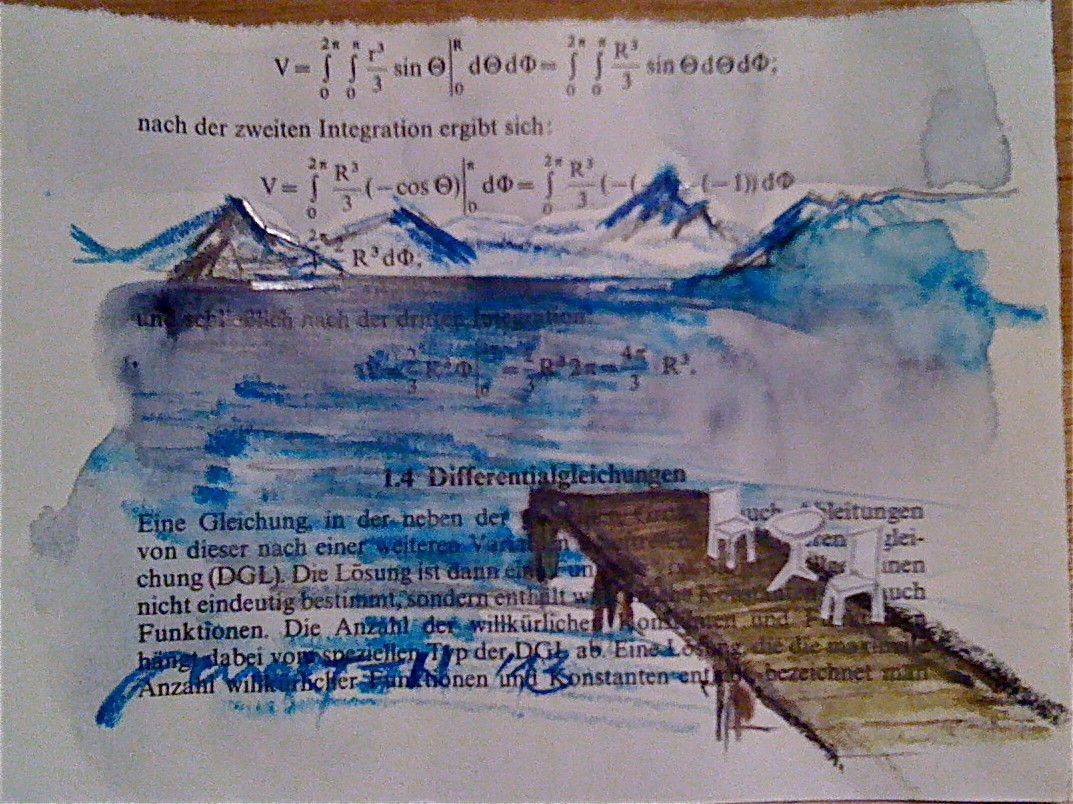 V = ∫₀^2π ∫₀^π r³/3 sin Θ |₀^R dΘdΦ = ∫₀^2π ∫₀^π R³/3 sin ΘdΘdΦ;
nach der zweiten Integration ergibt sich:
V = ∫₀^2π R³/3 (−cos Θ)|₀^π dΦ = ∫₀^2π R³/3 (−( (−1)) dΦ
R³dΦ;
und schließlich nach der dritten Integration:
R³Φ = 2/3 R³ 2π = 4π/3 R³.
1.4 Differentialgleichungen
Eine Gleichung, in der neben der auch Ableitungen
von dieser nach einer weiteren glei-
chung (DGL). Die Lösung ist dann
nicht eindeutig bestimmt, sondern enthält auch
Funktionen. Die Anzahl der willkürlichen Konstanten und
hängt dabei vom speziellen Typ der DGL ab. Eine Lösung, die die maximale
Anzahl willkürlicher Funktionen und Konstanten enthält, bezeichnet man